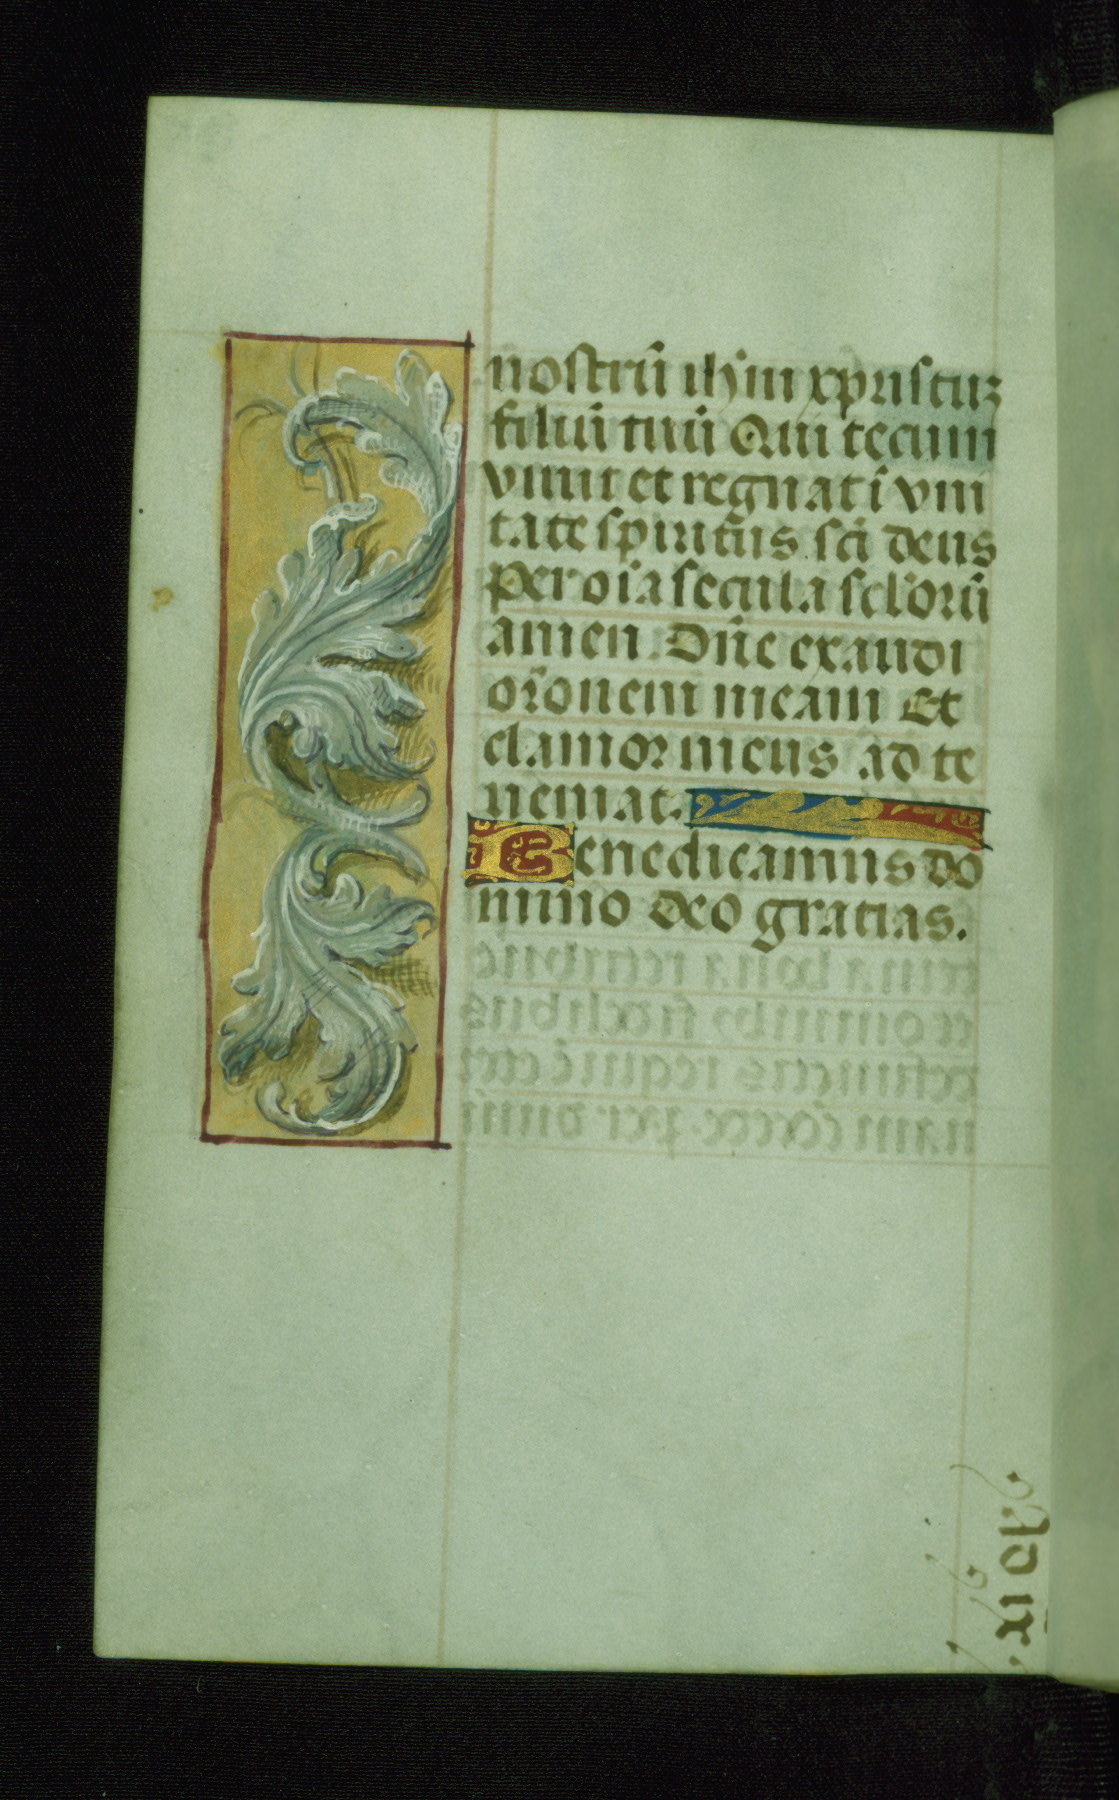 nostrũ ihm̃ xpristuꝫ
filiũ tuũ Qui tecum
viuit et regnat ĩ vni
tate spiritũs sc̃i deus
per oĩa secula sc̃lorũ
amen Dñe exaudi
or̃onem meam Et
clamor meus ad te
ueniat.
Benedicamus do
mino deo gratias.